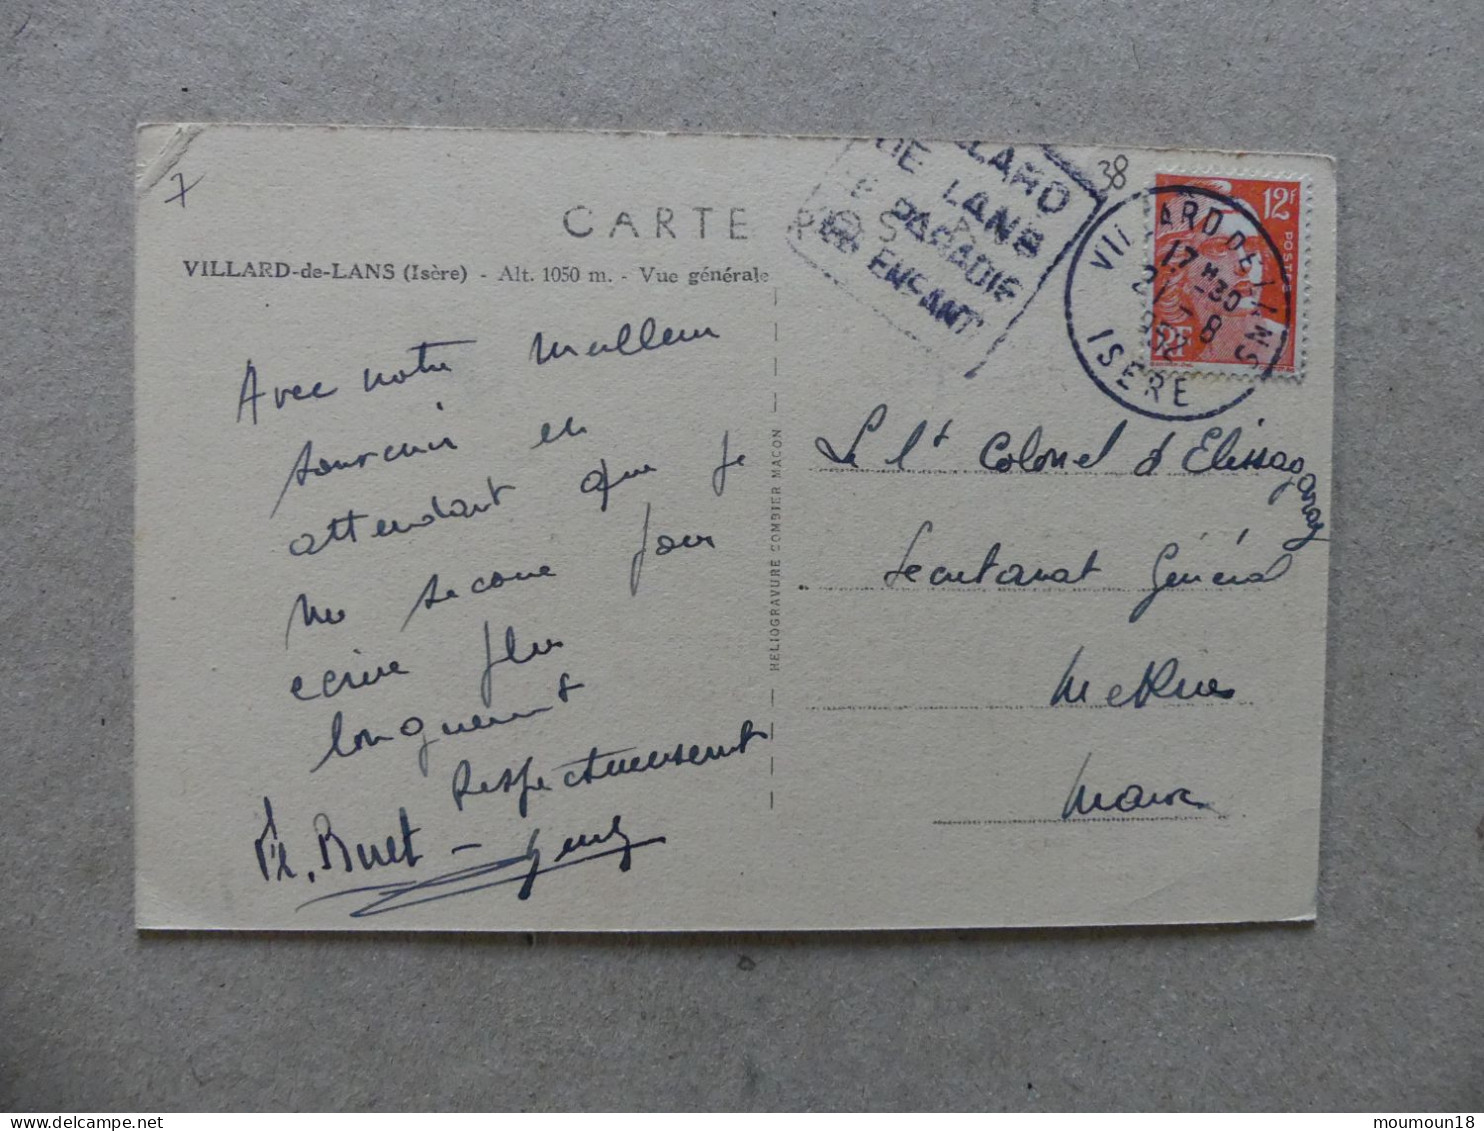 7
38
CARTE POSTALE
VILLARD-de-LANS (Isère) - Alt. 1050 m. - Vue générale
VILLARD
DE LANS
PARADIS
ENFANT
VILLARD DE LANS
17H30
21 - 8
1952
ISERE
12F
POSTES
RF
Avec notre meilleur
souvenir en
attendant que je
me secoue pour
écrire plus
longuement
Respectueusement
HELIOGRAVURE COMBIER MACON
Le Lt Colonel d'Elissagaray
Secretariat Général
Meknes
Maroc
moumoun18